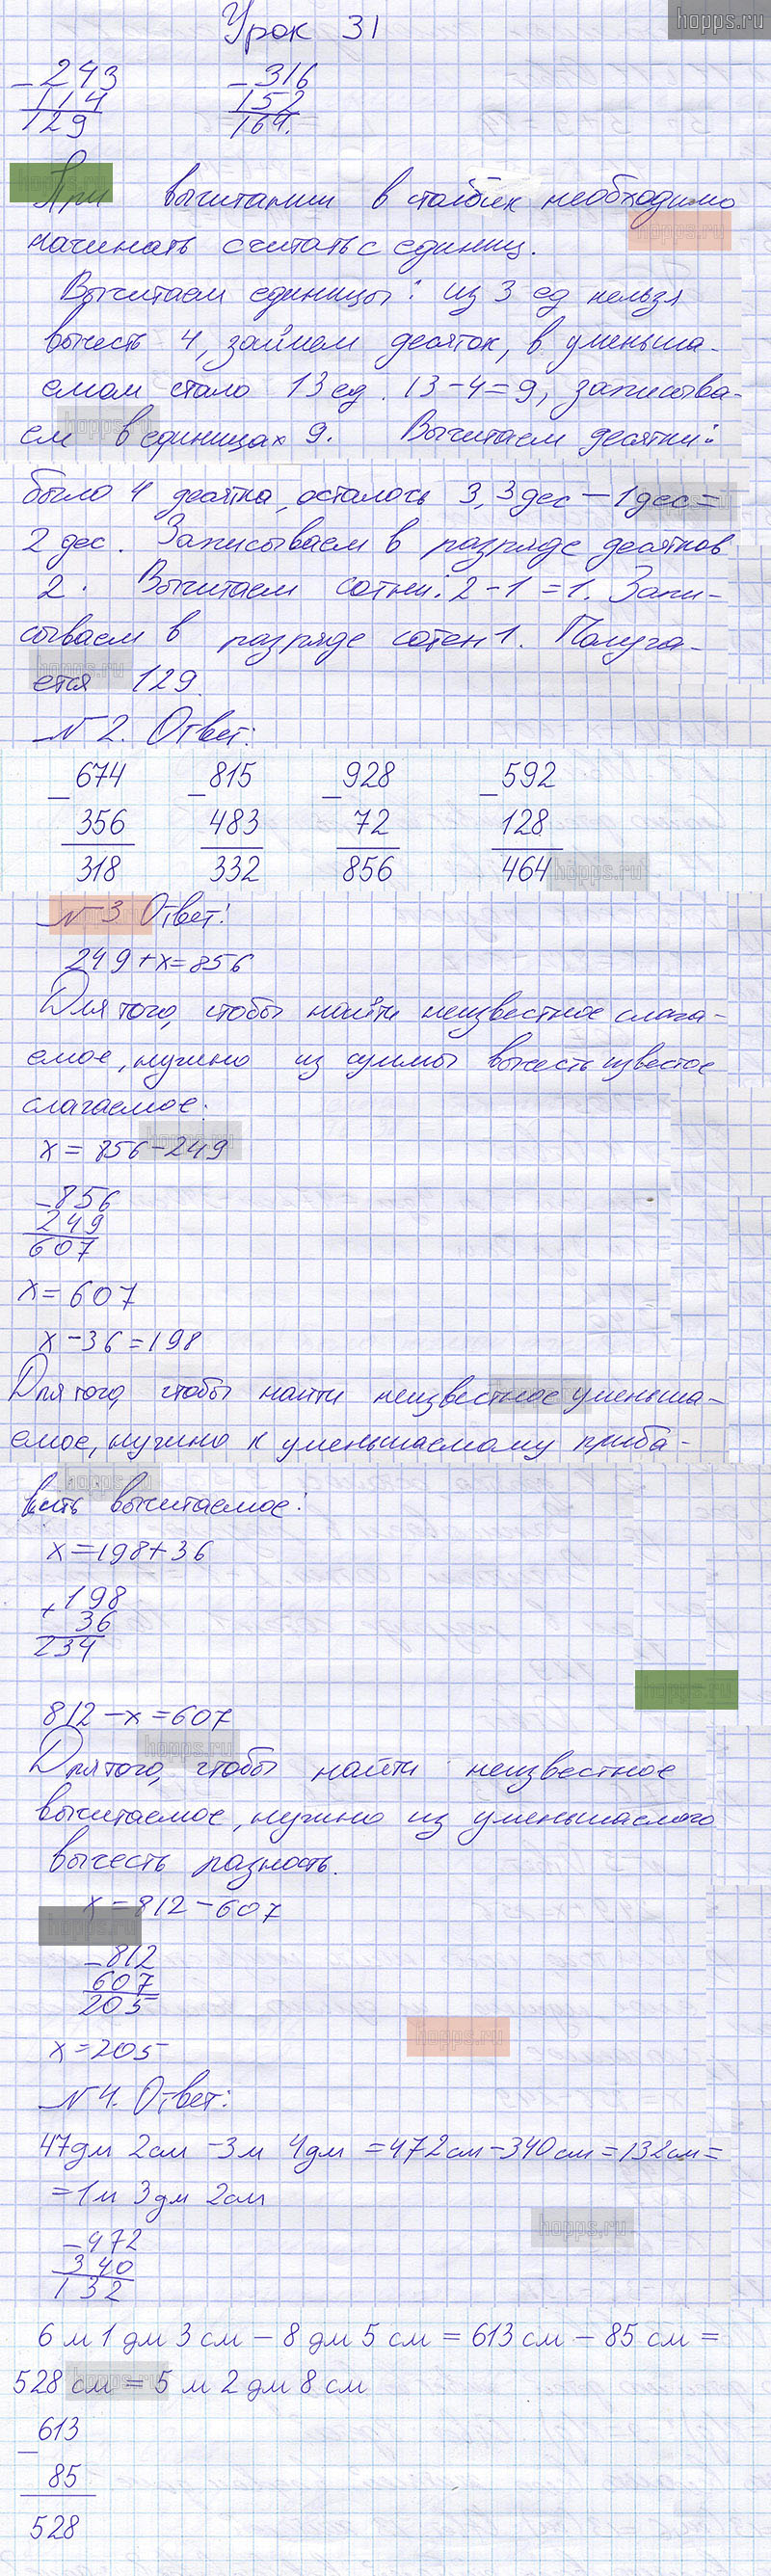 hopps.ru
Урок 31
- 243
114
129
- 316
152
164.
При вычитании в столбик необходимо
начинать считать с единиц.
Вычитаем единицы: из 3 ед нельзя
вычесть 4, займем десяток, в уменьша-
емом стало 13 ед. 13-4=9, записыва-
ем в единицах 9. Вычитаем десятки:
было 4 десятка, осталось 3, 3 дес - 1 дес =
2 дес. Записываем в разряде десятков
2. Вычитаем сотни: 2-1=1. Запи-
сываем в разряде сотен 1. Получа-
ется 129.
№2. Ответ:
- 674
356
318
- 815
483
332
- 928
72
856
- 592
128
464
№3 Ответ:
249+x=856
Для того, чтобы найти неизвестное слага-
емое, нужно из суммы вычесть известое
слагаемое:
x=856-249
- 856
249
607
x=607
x-36=198
Для того, чтобы найти неизвестное уменьша-
емое, нужно к уменьшаемому приба-
вить вычитаемое:
x=198+36
+ 198
36
234
812-x=607
Для того, чтобы найти неизвестное
вычитаемое, нужно из уменьшаемого
вычесть разность.
x=812-607
- 812
607
205
x=205
№4. Ответ:
47дм 2см - 3м 4дм = 472см - 340см = 132см =
= 1м 3дм 2см
- 472
340
132
6 м 1 дм 3 см - 8 дм 5 см = 613 см - 85 см =
528 см = 5 м 2 дм 8 см
- 613
85
528